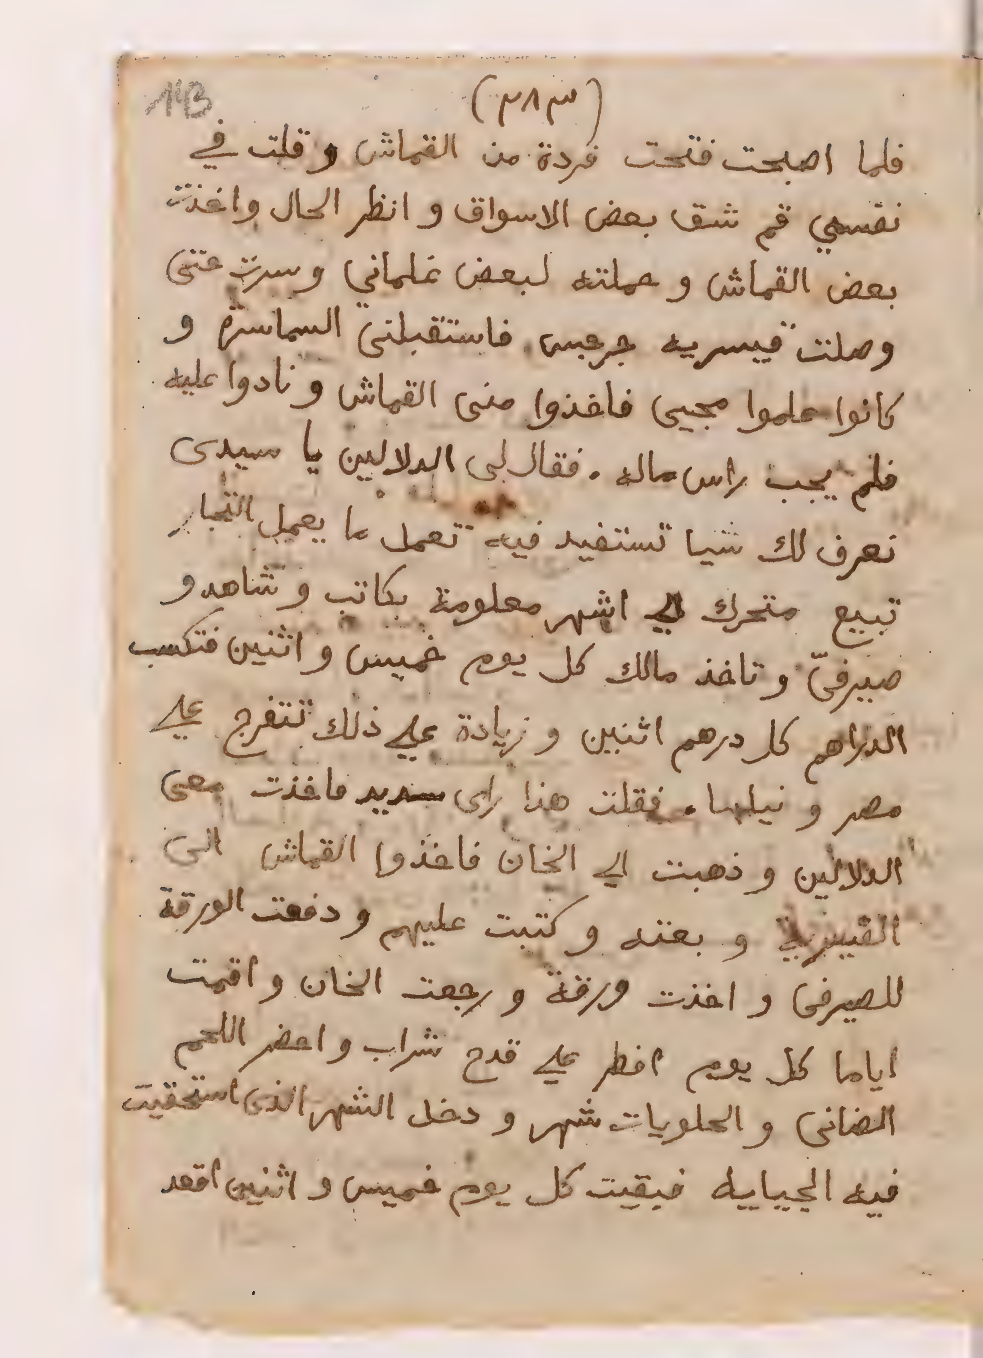 143
(٢٨٣)
فلما اصبحت فتحت فردة من القماش وقلت في
نفسي قم شق بعض الاسواق و انظر الحال واخذت
بعض القماش و حملته لبعض غلماني وسرت حتى
وصلت قيسرية جرجس فاستقبلتني السماسرة و
كانوا علموا مجيى فاخذوا منى القماش و نادوا عليه
فلم يجب راس ماله . فقال لى الدلالين يا سيدى
نعرف لك شيا تستفيد فيه تعمل ما يعمل التجار
تبيع متجرك الي اشهر معلومة بكاتب و شاهد و
صيرفىّ و تاخذ مالك كل يوم خميس و اثنين فتكسب
الدراهم كل درهم اثنين و زيادة علي ذلك تتفرج علي
مصر و نيلها . فقلت هذا راى سديد فاخذت معى
الدلالين و ذهبت الي الخان فاخذوا القماش الى
القيسرية و بعته و كتبت عليهم و دفعت الورقة
للصيرفى و اخذت ورقة و رجعت الخان و اقمت
اياما كل يوم افطر علي قدح شراب و احضر اللحم
الضانى و الحلويات شهر و دخل الشهر الذى استحقيت
فيه الجبايه فبقيت كل يوم خميس و اثنين اقعد